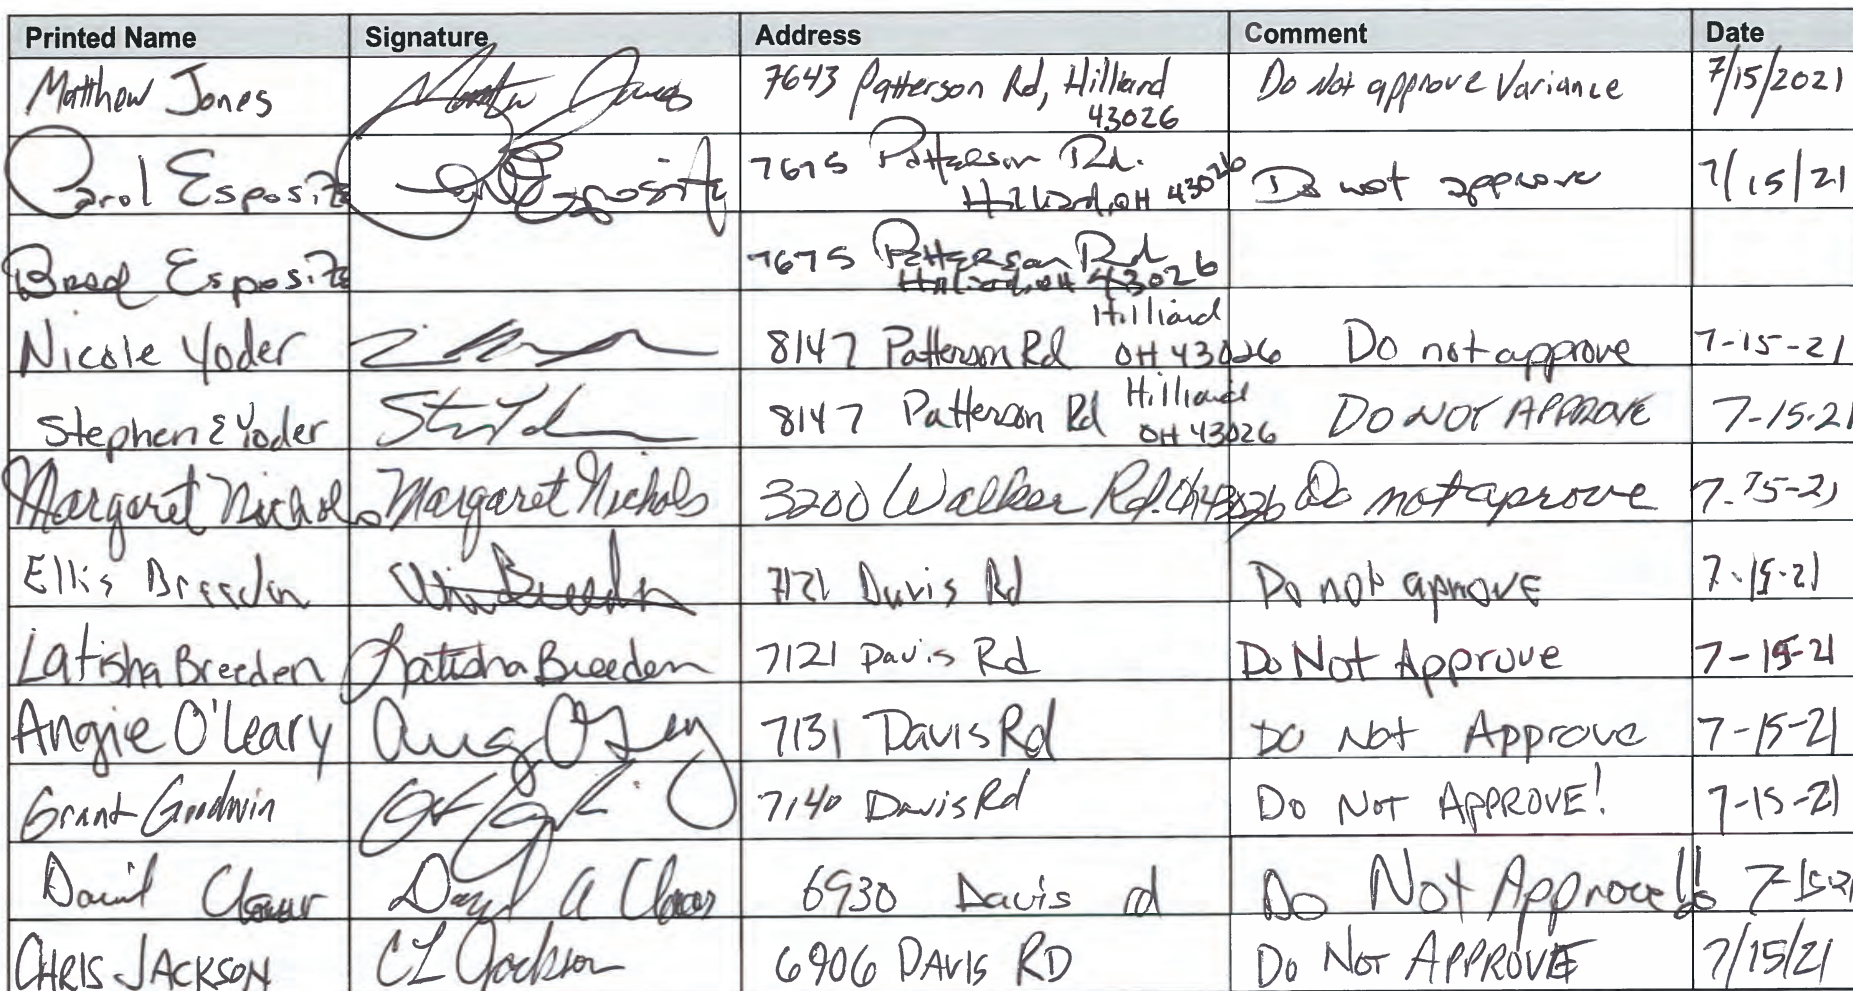 Printed Name Signature Address Comment Date
Matthew Jones 7643 Patterson Rd, Hilliard 43026 Do Not approve Variance 7/15/2021
Carol Esposito Carol Esposito 7675 Patterson Rd. Hilliard, OH 43026 Do not approve 7/15/21
Brad Esposito 7675 Patterson Rd Hilliard, OH 43026
Nicole Yoder 8147 Patterson Rd Hilliard OH 43026 Do not approve 7-15-21
Stephen E Yoder 8147 Patterson Rd Hilliard OH 43026 DO NOT APPROVE 7-15-21
Margaret Nichols Margaret Nichols 3200 Walker Rd. Oh 43026 Do not aprove 7-15-21
Ellis Breeden Breeden 7121 Davis Rd Do not aprove 7-15-21
Latisha Breeden Latisha Breeden 7121 Davis Rd Do Not Approve 7-15-21
Angie O'Leary 7131 Davis Rd DO Not Approve 7-15-21
Grant Goodwin 7140 Davis Rd Do Not APPROVE! 7-15-21
David David A 6930 Davis rd Do Not Approve!! 7-15-21
CHRIS JACKSON CL Jackson 6906 DAVIS RD Do Not APPROVE 7/15/21